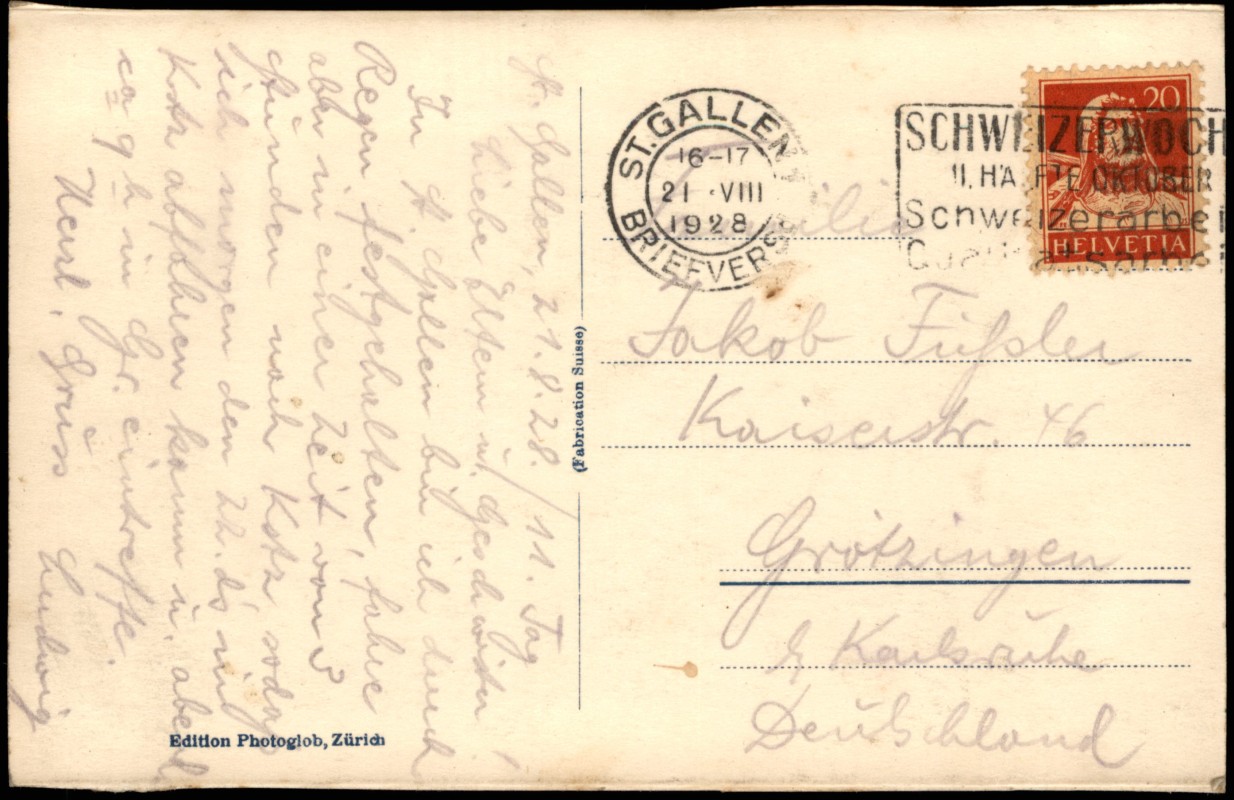 St. Gallen, 21.8.28. / 11. Tag
Liebe Eltern u. Geschwister!
In St. Gallen bin ich durch
Regen festgehalten, fahre
aber in einer Zeit von 3
Stunden nach Kstz, sodaß
ich morgen den 22. ds mit
Kstz abfahren kann u. abend
ca 9 h in Gr. eintreffe.
Herzl. Grüss
Ludwig
Edition Photoglob, Zürich
(Fabrication Suisse)
ST. GALLEN 1
16-17
21. VIII
1928
BRIEFVERS
SCHWEIZERWOCH
II. HÄLFTE OKTOBER
Schweizerarbei
Qualitätsarbeit
20
HELVETIA
Familie
Jakob Füßler
Kaiserstr. 46
Grötzingen
b/ Karlsruhe
Deutschland